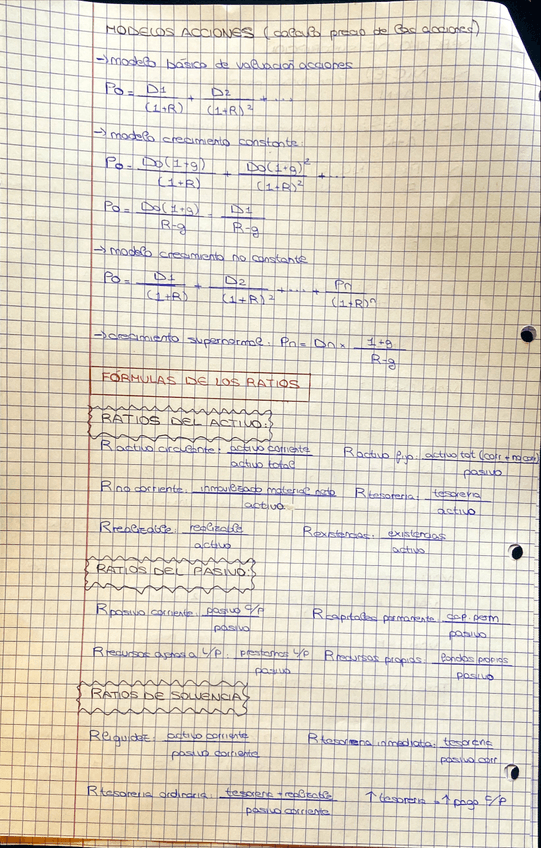 MODELOS ACCIONES (cálculo precio de las acciones)
→ modelo básico de valuación acciones
P0 = D1/(1+R) + D2/(1+R)^2 + ...
→ modelo crecimiento constante
P0 = D0(1+g)/(1+R) + D0(1+g)^2/(1+R)^2 + ...
P0 = D0(1+g)/R-g = D1/R-g
→ modelo crecimiento no constante
P0 = D1/(1+R) + D2/(1+R)^2 + ... + Pn/(1+R)^n
→ crecimiento supernormal. Pn = Dn x 1+g/R-g
FÓRMULAS DE LOS RATIOS
RATIOS DEL ACTIVO:
R activo circulante: activo corriente/activo total R activo fijo: activo tot (corr + no corr)/pasivo
R no corriente: inmovilizado material neto/activo R tesoreria: tesoreria/activo
R realizable: realizable/activo R existencias: existencias/activo
RATIOS DEL PASIVO:
R pasivo corriente: pasivo C/P/pasivo R capitales permanente: cap. perm/pasivo
R recursos ajenos a L/P: prestamos L/P/pasivo R recursos propios: fondos propios/pasivo
RATIOS DE SOLVENCIA
R liquidez: activo corriente/pasivo corriente R tesoreria inmediata: tesoreria/pasivo corr
R tesoreria ordinaria: tesoreria + realizable/pasivo corriente ↑ tesoreria = ↑ pago C/P